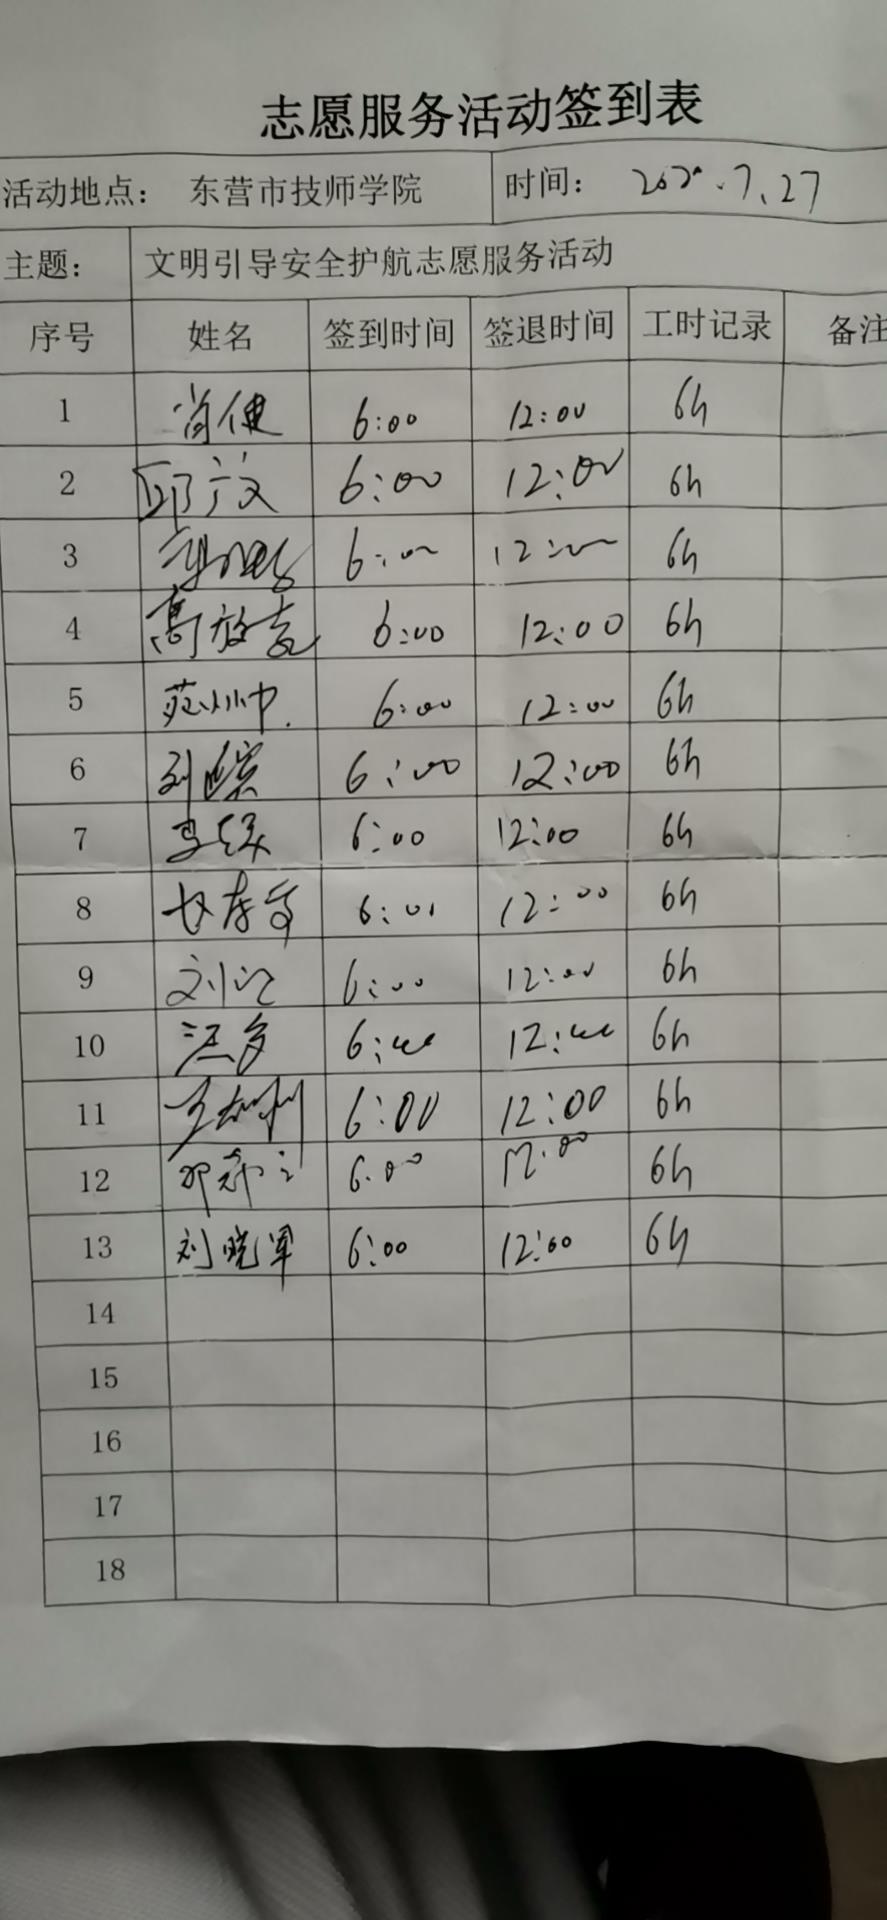 志愿服务活动签到表
活动地点： 东营市技师学院 时间： 2020.7.27
主题： 文明引导安全护航志愿服务活动
序号 姓名 签到时间 签退时间 工时记录 备注
1 6:00 12:00 6h
2 邱广文 6:00 12:00 6h
3 6:00 12:00 6h
4 高放 6:00 12:00 6h
5 苑 6:00 12:00 6h
6 刘 6:00 12:00 6h
7 6:00 12:00 6h
8 6:00 12:00 6h
9 刘 6:00 12:00 6h
10 6:00 12:00 6h
11 王 6:00 12:00 6h
12 邓 6:00 12:00 6h
13 刘晓军 6:00 12:00 6h
14
15
16
17
18